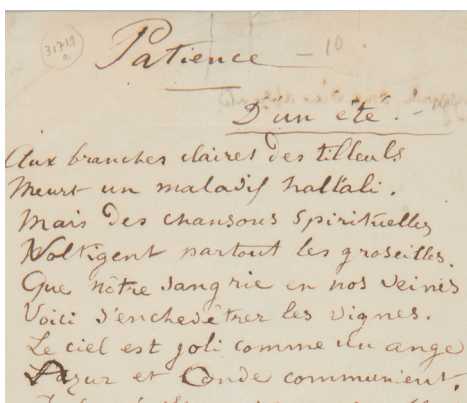 31719
a
Patience - 10
D'un été. -
Aux branches claires des tilleuls
Meurt un maladif hallali.
Mais des chansons spirituelles
Voltigent partout les groseilles.
Que nôtre sangrie en nos veines
Voici s'enchevêtrer les vignes.
Le ciel est joli comme un ange
Azur et Onde communient.